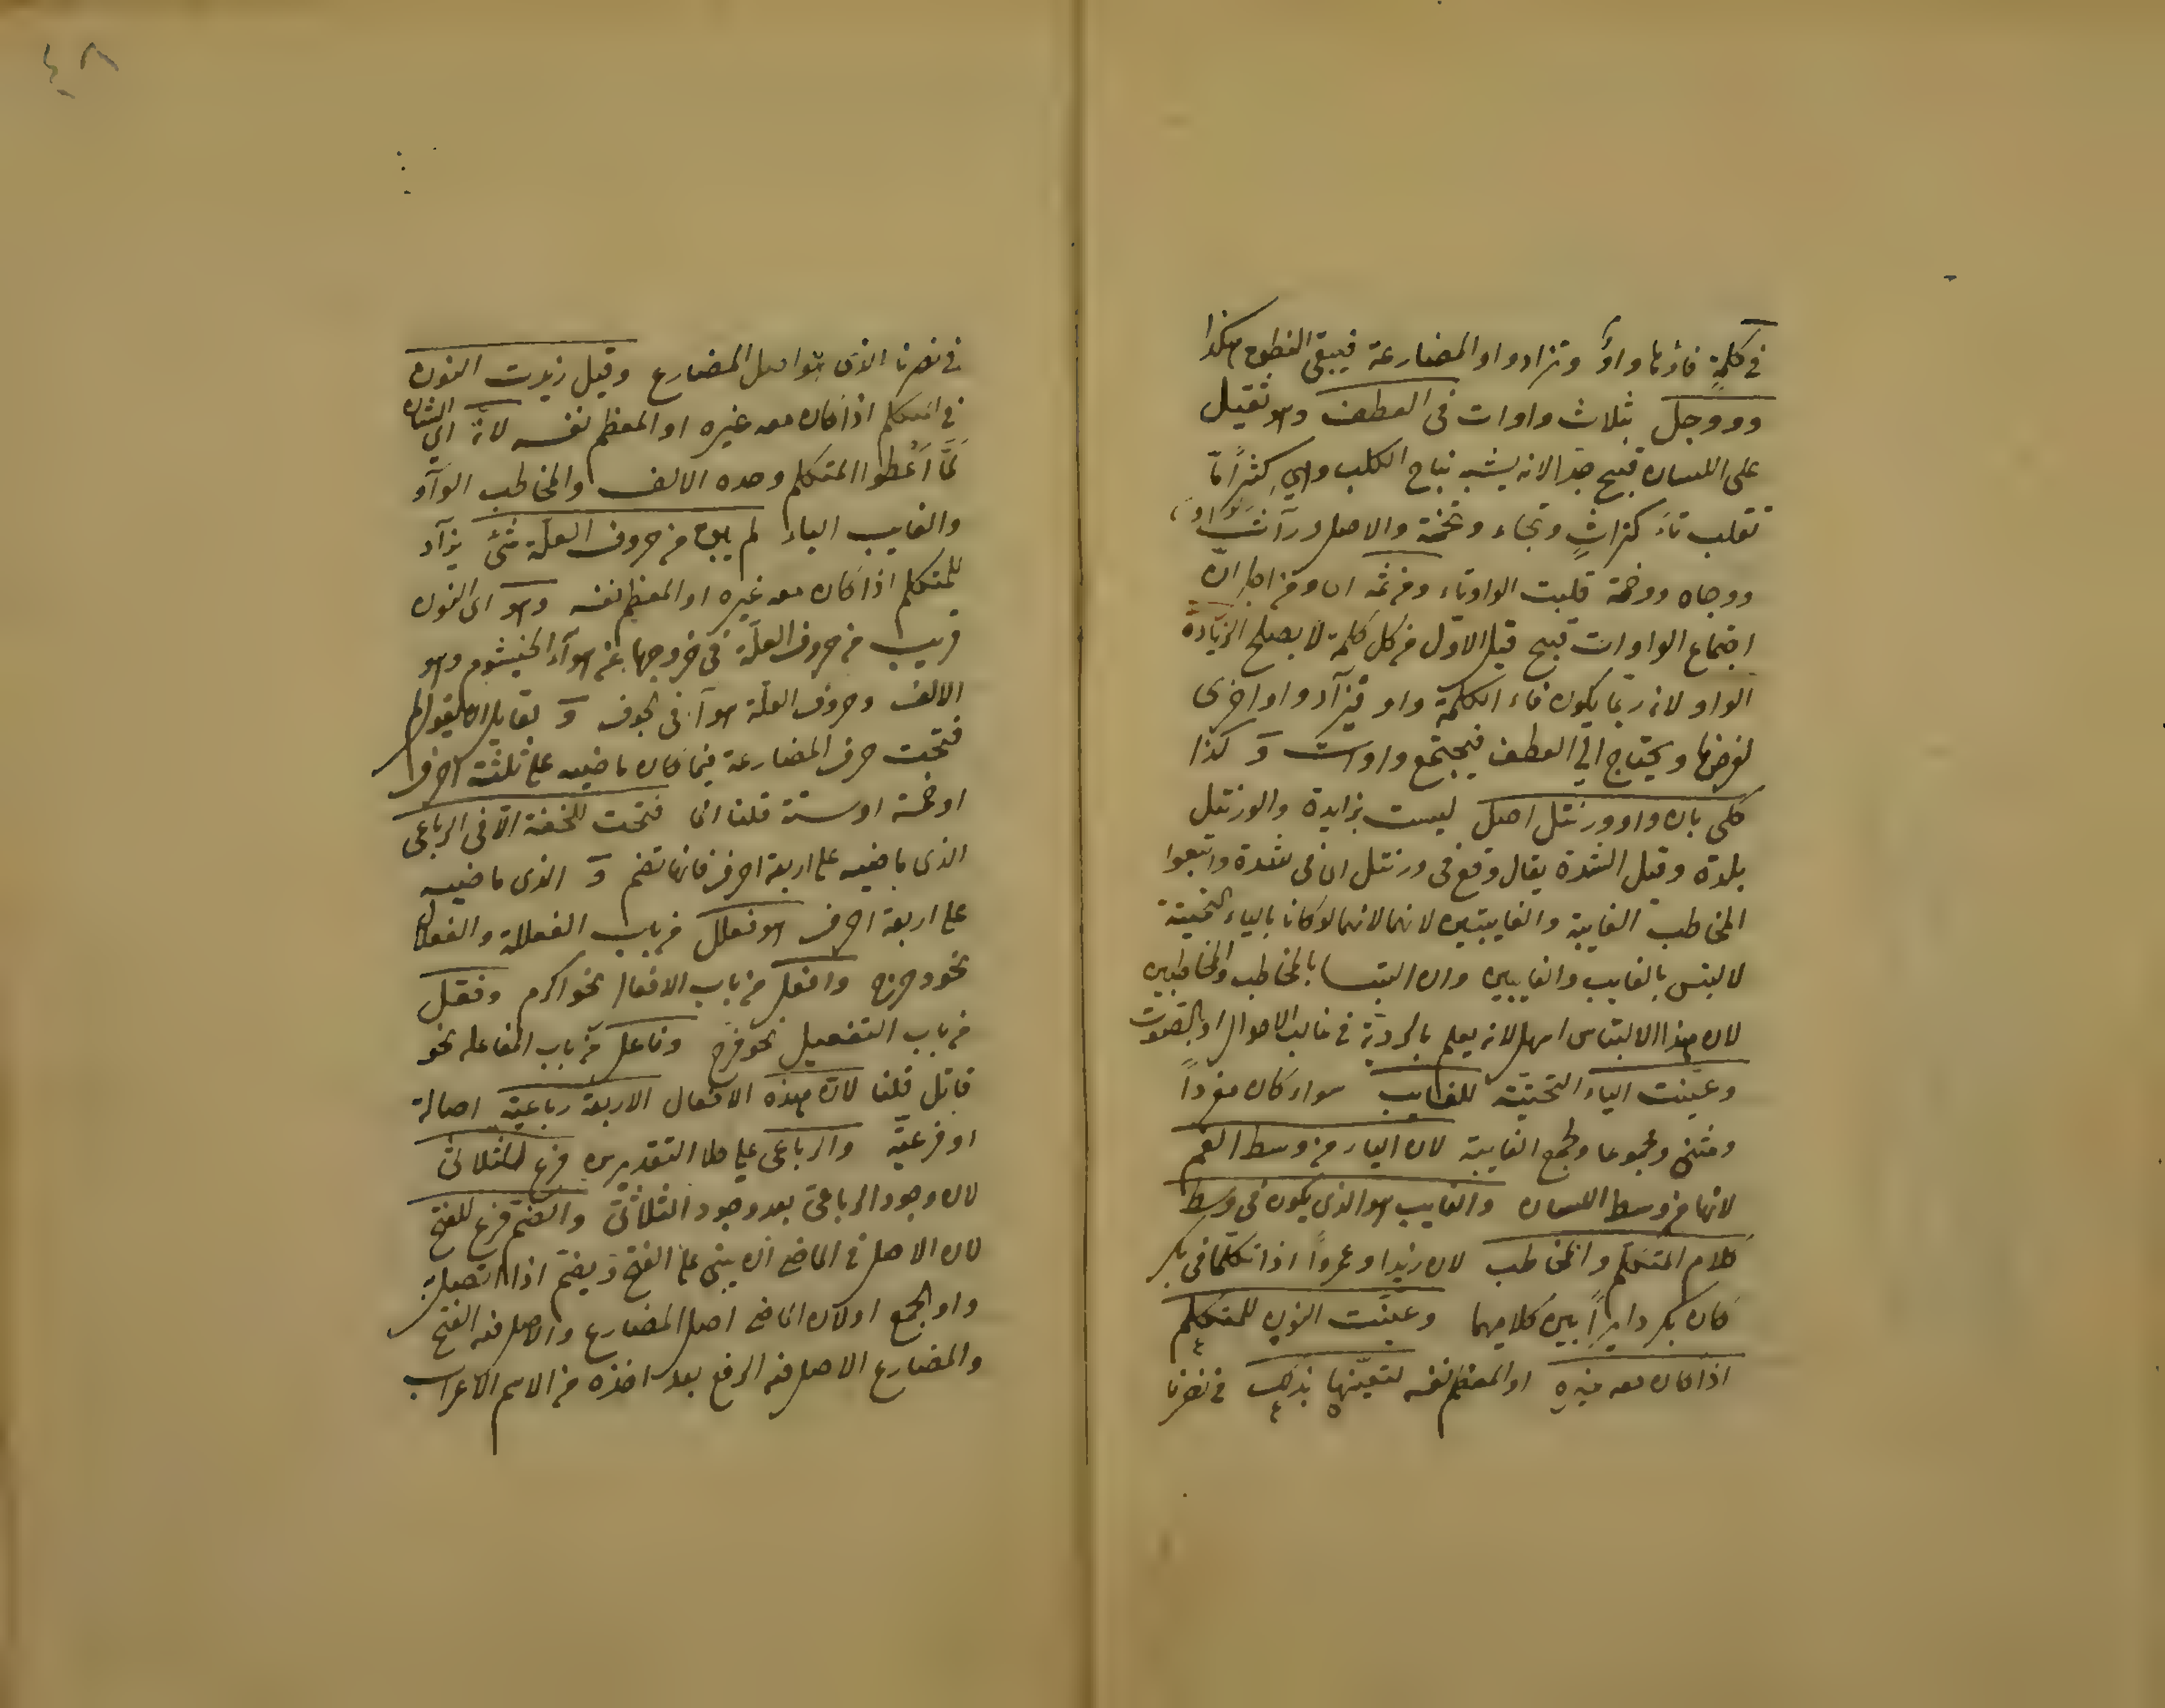 في كلمةٍ فاؤها واوٌ وتزاد واو المضارعة فيبقى النطق هكذا
وووجل بثلاث واوات في العطف وهو ثقيل
على اللسان قبيح جدا لانه يشبه نباح الكلب وهي كثيرًا ما
تقلب تاءً كتراثٍ وتجاه وتخمة والاصل وراث
ووجاه ووخمة قلبت الواو تاء ومن ثمه اى ومن اجل ان
اجتماع الواوات قبيح قيل الاول من كل كلمة لا يصلح لزيادة
الواو لانه ربما يكون فاء الكلمة واو فيزاد واو اخرى
لغرضها ويحتاج الى العطف فيجتمع واوات و كذا
حكى بان واو ورنتل اصل ليست بزايدة والورنتل
بلدة وقيل الشدة يقال وقع في ورنتل اى في شدة واتبعوا
المخاطب الغايبة والغايبتين لانهما لانهما لو كانا بالياء التحتية
لالتبس بالغايب والغايبين وان التبسا بالمخاطب والمخاطبين
لان هذا الالتباس اسهل لانه يعلم بالرؤية في غالب الاحوال او بالصوت
وعينت الياء التحتية للغايب سواء كان مفرداً
ومثنى ومجموعا ولجمع الغايبة لان الياء من وسط الفم
لانها من وسط اللسان والغايب هو الذي يكون في وسط
كلام المتكلم والمخاطب لان زيدا وعمرواً اذا تكلما في بكر
كان بكر دايراً بين كلاميهما وعينت النون للمتكلم
اذا كان معه غيره او المعظم نفسه لتعينها بذلك في نصرنا
٤٨
في نصرنا الذى هو اصل المضارع وقيل زيدت النون
في المتكلم اذا كان معه غيره او المعظم نفسه لانه اي الشان
لمَّا اَعْطوا المتكلم وحده الالف والمخاطب الواو
والغايب الياء لم يبق من حروف العلة شئ يزاد
للمتكلم اذا كان معه غيره او المعظم نفسه وهو اى النون
قريب من حروف العلة في خروجها عن هواء الخيشوم وهو
الالف وحروف العلة هواء في الجوف و لقايل ان يقول لم
فتحت حرف المضارعة فيما كان ماضيه على ثلثة احرف
او خمسة او ستة قلنا انما فتحت للخفة الا في الرباعي
الذى ماضيه على اربعة احرف فانها تضم و الذى ماضيه
على اربعة احرف هو فعلل من باب الفعللة والفعلال
نحو دحرج وافعل من باب الافعال نحو اكرم وفعّل
من باب التفعيل نحو فرّح وفاعل من باب المفاعلة نحو
قاتل قلنا لان هذه الافعال الاربعة رباعية اصالة
او فرعيّة والرباعي على كلا التقديرين فرع للثلاثى
لان وجود الرباعيّ بعد وجود الثلاثيّ والضم فرع للفتح
لان الاصل في الماضي ان يبنى على الفتح ويضم اذا اتصل به
واو الجمع اولان الماضى اصل المضارع والاصل فيه الفتح
والمضارع الاصل فيه الرفع بعد اخذه من الاسم الاعراب